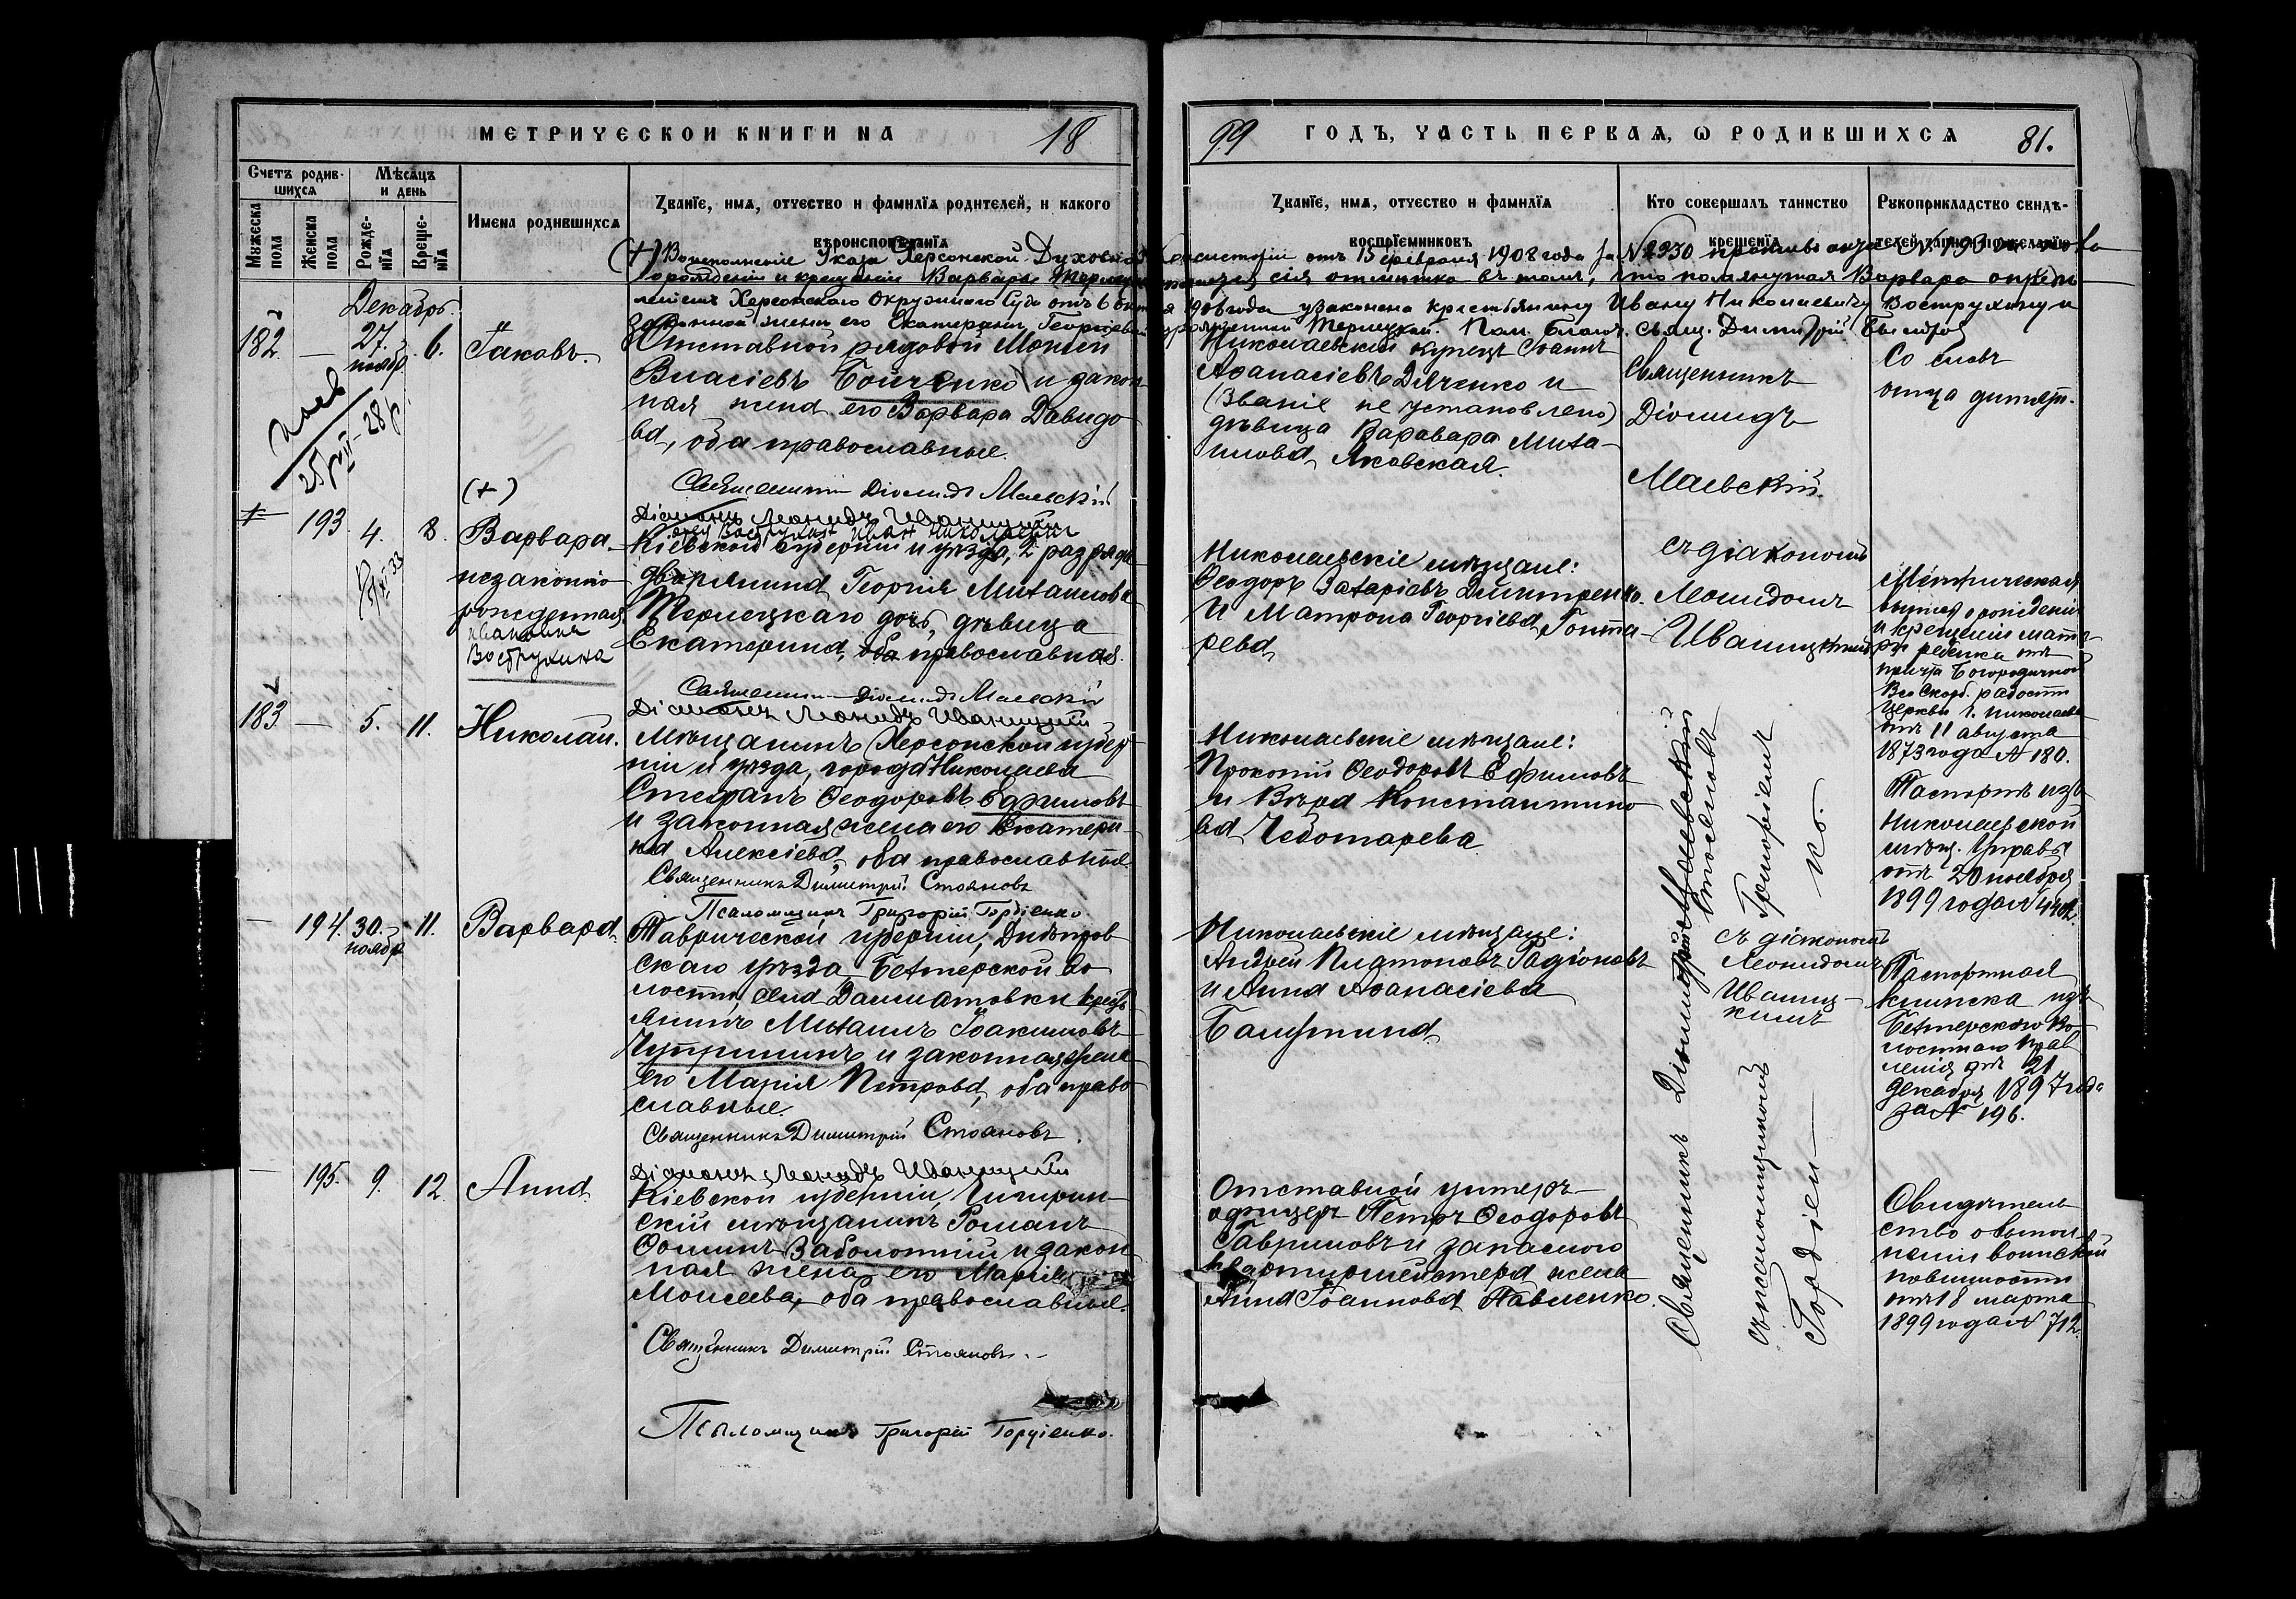 МЕТРИЧЕСКОЙ КНИГИ НА 18
99 ГОДЪ, ЧАСТЬ ПЕРВАЯ, Ѡ РОДИВШИХСЯ 81.
Счетъ родившихся
Мѣсяцъ и день
Мужеска пола
Женска пола
Рожденїя
Крещенїя
Имена родившихся
Званїе, имя, отчество и фамилїя родителей, и какого вѣроисповѣданїя
Званїе, имя, отчество и фамилїя воспрїемниковъ
Кто совершалъ таинство крещенїя
Рукоприкладство свидѣтелей записи по желанїю
(+) Во исполненіе Указа Херсонской Духовной Консисторіи отъ 15 февраля 1908 года за № 2930 противъ акта № 193
о рожденіи и крещеніи Варвары сія отмѣтка въ томъ, что помянутая Варвара опредѣ-
леніемъ Херсонскаго Окружнаго Суда отъ 6 1906 года узаконена крестьянину Ивану Николаевичу Вострухину и
законной женѣ его Екатеринѣ Георгіевой Терлецкой. свящ. Димитрій
Декабрь.
182. — 27. нояб. 6. Іаковъ.
Отставной рядовой Моисей
Власіевъ Бойченко и закон-
ная жена его Варвара Давидо-
ва, оба православные.
Священникъ Діомидъ Маевскій
Діаконъ Леонидъ Иваницкій
Николаевскій купецъ Іоаннъ
Аѳанасіевъ Дяченко и
(званіе не установлено)
дѣвица Варвара Миха-
илова Яковская.
Священникъ
Діомидъ
Маевскій
Со словъ
отца дитяти.
(+)
193. 4. 8. Варвара
незаконно
рожденная
Ивановна
Вострухина
отец Вострухин Иван Николаевич
Кіевской губерніи и уѣзда, 2 разряда
дворянина Георгія Михаилова
Терлецкаго дочь, дѣвица
Екатерина, православная.
Священникъ Діомидъ Маевскій
Діаконъ Леонидъ Иваницкій
Николаевскіе мѣщане:
Ѳеодоръ Захаріевъ Дмитренко
и Матрона Георгіева Гонта-
рева
съ діакономъ
Леонидомъ
Иваницкимъ
Метрическая
выпись о рожденіи
и крещеніи мате-
ри ребенка отъ
причта Богородичной
Всѣ Скорб. радости
церкви г. Николаева
отъ 11 августа
1873 года № 180.
183. — 5. 11. Николай.
Мѣщанинъ Херсонской губер-
ніи и уѣзда, города Николаева
Стефанъ Ѳеодоровъ Ефимовъ
и законная жена его Екатери-
на Алексіева, оба православные
Священникъ Димитрій Стояновъ
Псаломщикъ Григорій Гордіенко
Николаевскіе мѣщане:
Прокопій Ѳеодоровъ Ефимовъ
и Вѣра Константино-
ва Чеботарева
Паспортъ изъ
Николаевской
мѣщ. Управы
отъ 20 ноября
1899 года №
— 194. 30. ноября 11. Варвара
Таврической губерніи, Днѣпров-
скаго уѣзда, Бехтерской во-
лости, села Далматовки крестъ-
янинъ Михаилъ Іоакимовъ
Чупринъ и законная жена
его Марія Петрова, оба право-
славные.
Священникъ Димитрій Стояновъ.
Діаконъ Леонидъ Иваницкій
Николаевскіе мѣщане:
Андрей Платоновъ Радіоновъ
и Анна Аѳанасіева
съ діакономъ
Леонидомъ
Иваниц-
кимъ
Паспортная
книжка изъ
Бехтерскаго Во-
лостнаго Прав-
ленія отъ 21
декабря 1897 года
за № 196.
— 195. 9. 12. Анна.
Кіевской губерніи, Чигирин-
скій мѣщанинъ Романъ
Ѳоминъ Заболотній и закон-
ная жена его Марія
Моисеева, оба православные.
Священникъ Димитрій Стояновъ.
Псаломщикъ Григорій Гордіенко.
Отставной унтеръ-
офицеръ Петръ Ѳеодоровъ
Гавриловъ и запаснаго
квартирмейстера жена
Анна Іоаннова Павленко.
Священникъ Димитрій Стояновъ
съ псаломщикомъ Григоріемъ
Гордіен-ко.
Свидѣтель-
ство о выпол-
неніи воинской
повинности
отъ 18 марта
1899 года № 712.